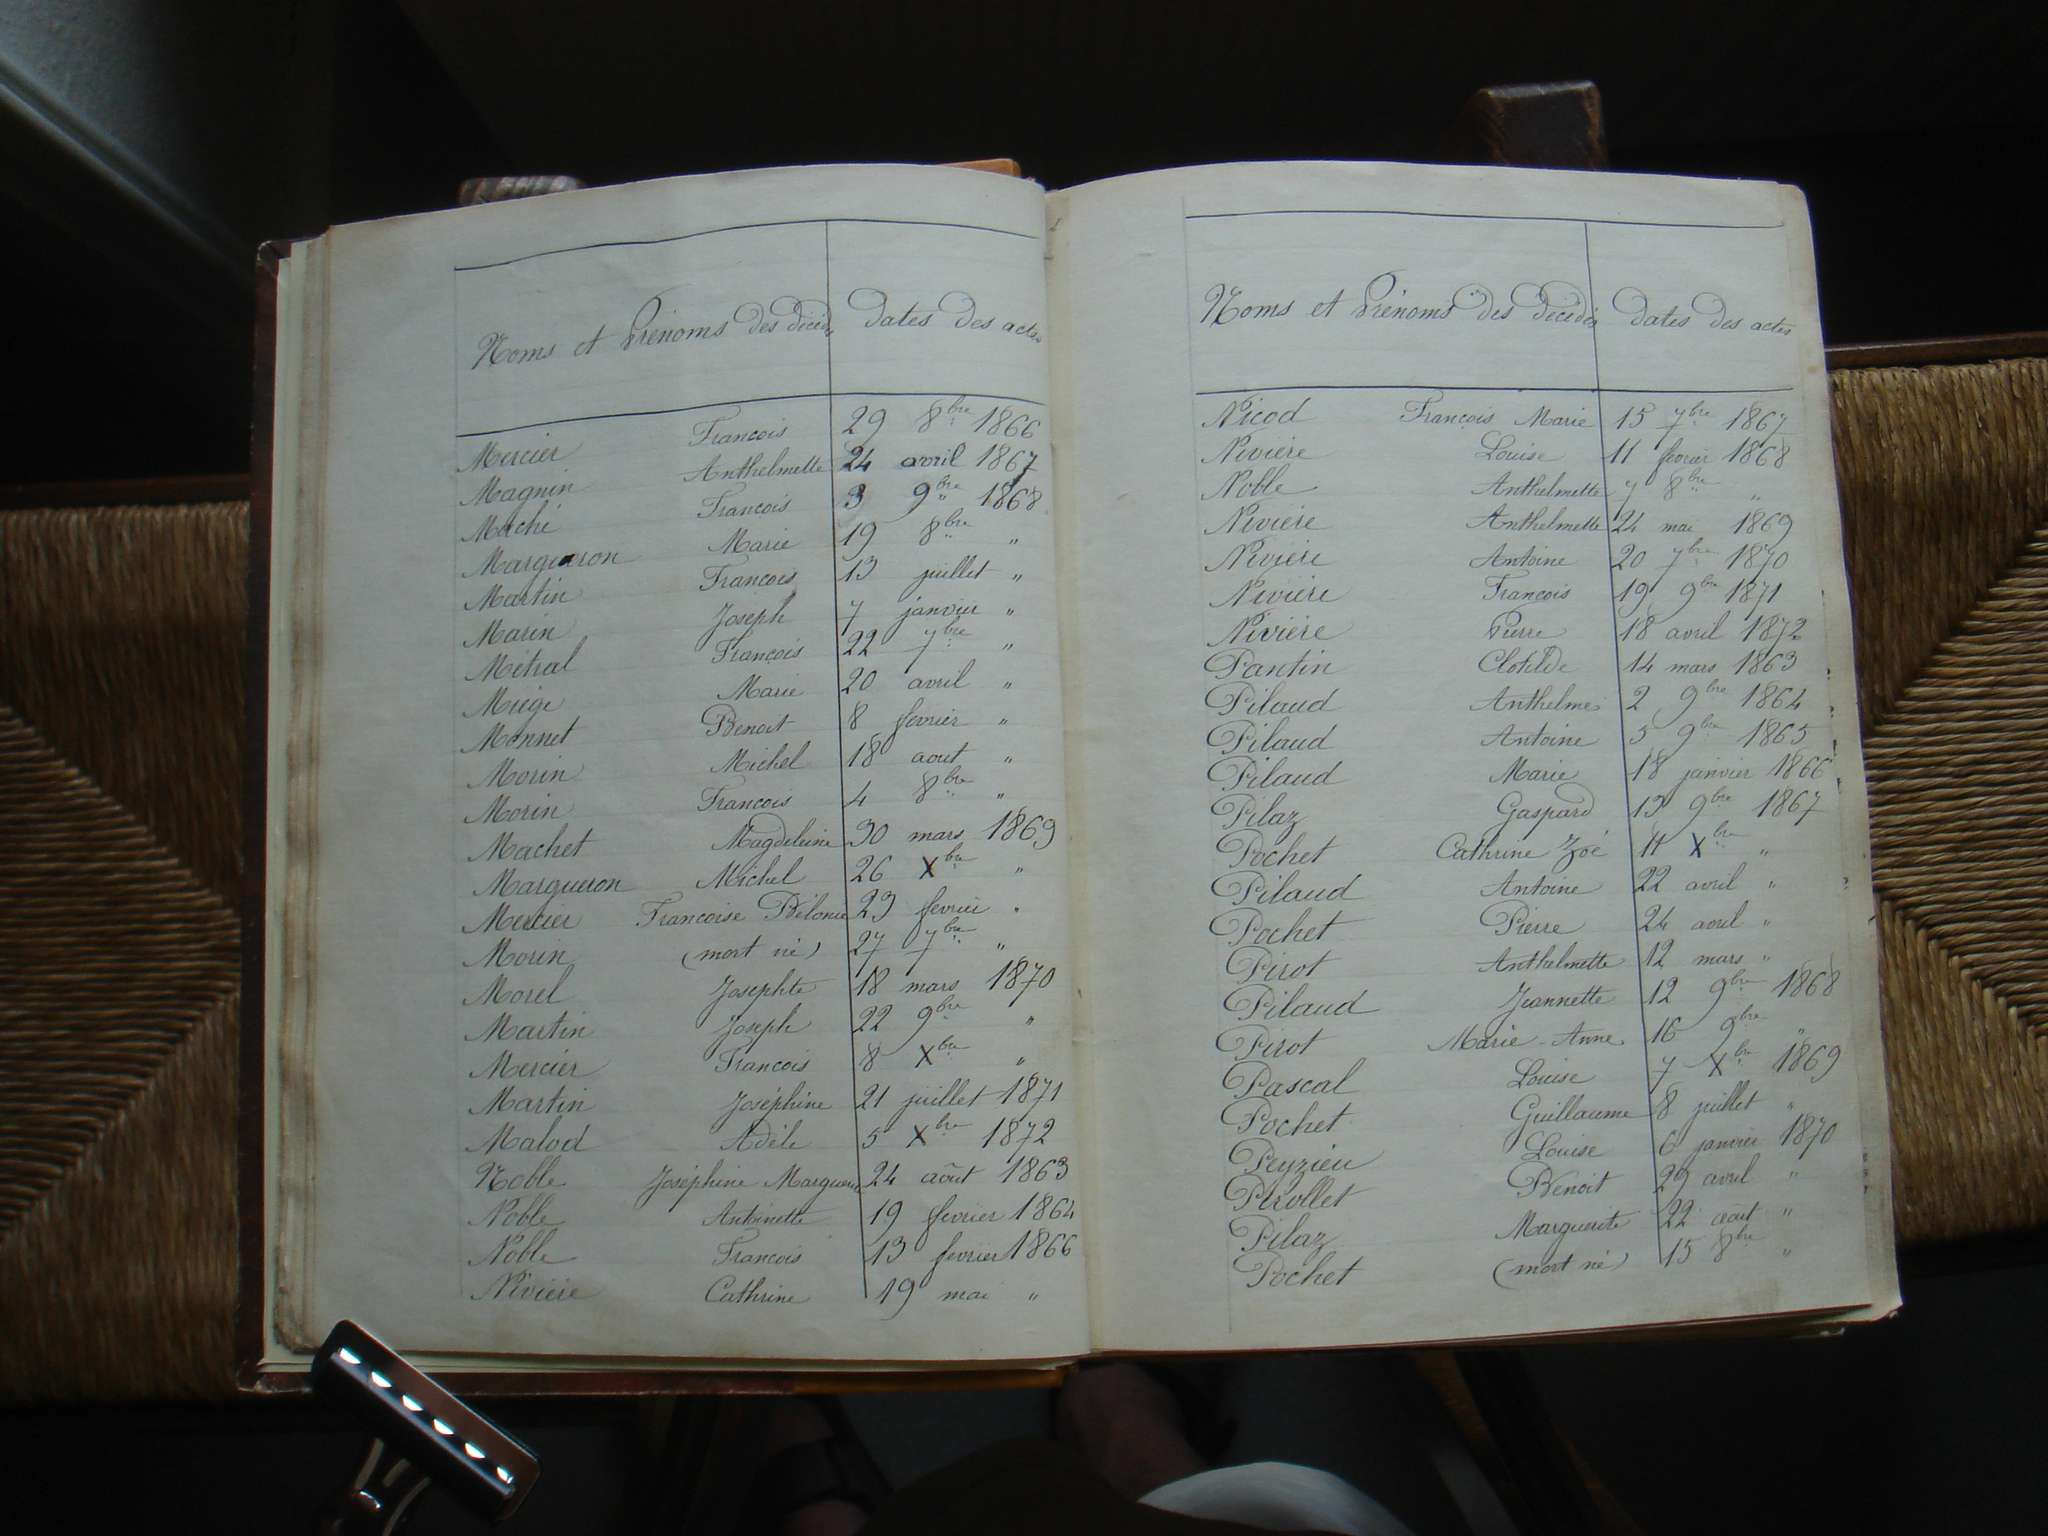 Noms et Prénoms des décédés dates des actes
Mercier François 29 8bre 1866
Magnin Anthelmette 24 avril 1867
Maché François 3 9bre 1868
Margueron Marie 19 8bre "
Martin François 13 juillet "
Marin Joseph 7 janvier "
Métral François 22 7bre "
Miège Marie 20 avril "
Monnet Benoit 8 fevrier "
Morin Michel 18 aout "
Morin François 4 8bre "
Machet Magdeleine 30 mars 1869
Margueron Michel 26 Xbre "
Mercier Françoise 23 fevrier "
Morin (mort né) 27 7bre "
Morel Josephte 18 mars 1870
Martin Joseph 22 9bre "
Mercier François 8 Xbre "
Martin Joséphine 21 juillet 1871
Malod Adèle 5 Xbre 1872
Noble Joséphine 24 août 1863
Noble Antoinette 19 fevrier 1864
Noble François 13 fevrier 1866
Nivière Cathrine 19 mai "
Noms et Prénoms des décédés dates des actes
Nicod François Marie 15 7bre 1867
Nivière Louise 11 fevrier 1868
Noble Anthelmette 7 8bre "
Nivière Anthelmette 24 mai 1869
Nivière Antoine 20 7bre 1870
Nivière François 19 9bre 1871
Nivière Pierre 18 avril 1872
Pantin Clotilde 14 mars 1863
Pilaud Anthelme 2 9bre 1864
Pilaud Antoine 5 9bre 1865
Pilaud Marie 18 janvier 1866
Pilaz Gaspard 13 9bre 1867
Pochet Cathrine Zoé 11 Xbre "
Pilaud Antoine 22 avril "
Pochet Pierre 24 avril "
Pirot Anthelmette 12 mars "
Pilaud Jeannette 12 9bre 1868
Pirot Marie-Anne 16 9bre "
Pascal Louise 7 Xbre 1869
Pochet Guillaume 8 juillet "
Peyzieu Louise 6 janvier 1870
Pirollet Benoit 29 avril "
Pilaz Marguerite 22 aout "
Pochet (mort né) 15 8bre "